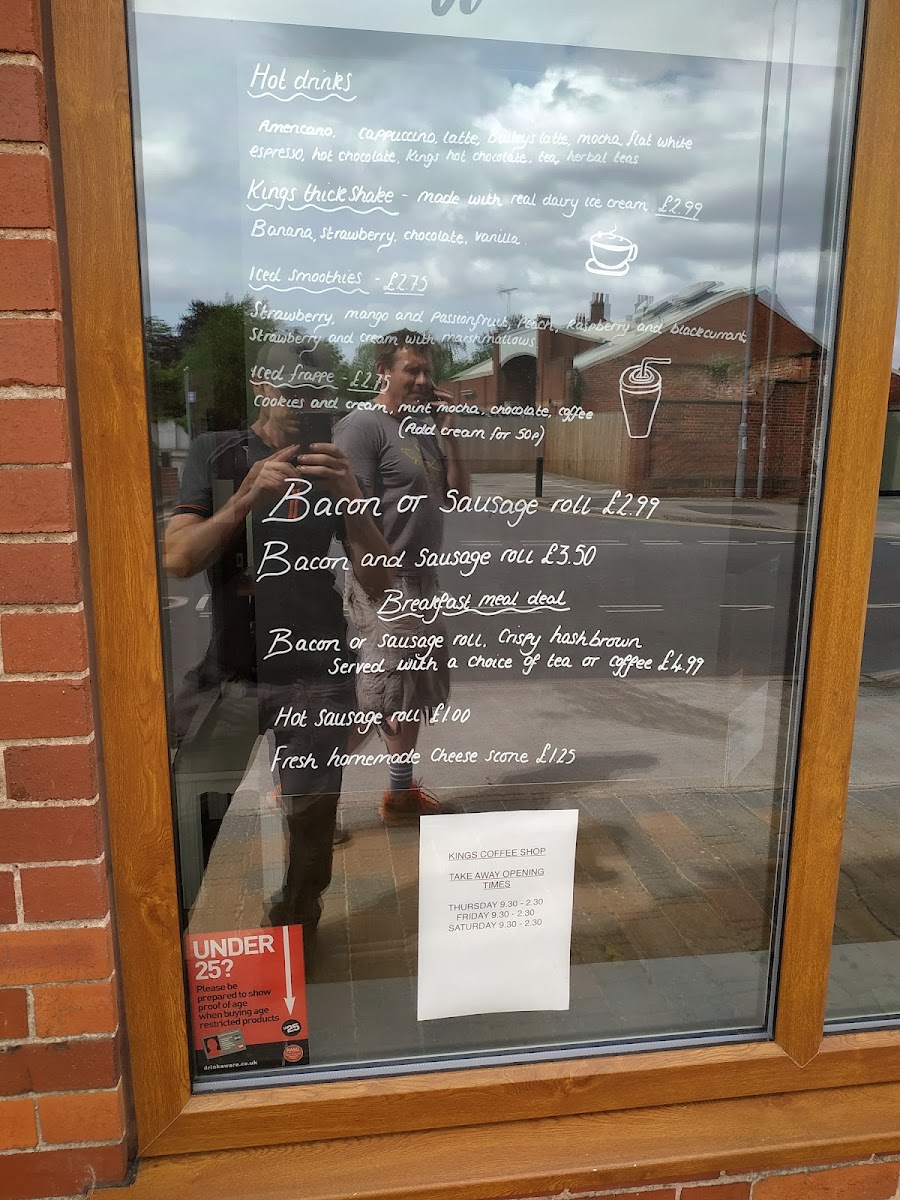 Hot drinks
Americano, cappuccino, latte, baileys latte, mocha, flat white
espresso, hot chocolate, Kings hot chocolate, tea, herbal teas
Kings thick shake - made with real dairy ice cream £2.99
Banana, strawberry, chocolate, vanilla.
Iced smoothies - £2.75
Strawberry, mango and passionfruit, Peach, Raspberry and blackcurrant
Strawberry and cream with marshmallows
Iced frappe - £2.75
Cookies and cream, mint mocha, chocolate, coffee
(Add cream for 50p)
Bacon or Sausage roll £2.99
Bacon and Sausage roll £3.50
Breakfast meal deal
Bacon or sausage roll. Crispy hashbrown
Served with a choice of tea or coffee £4.99
Hot sausage roll £1.00
Fresh homemade cheese scone £1.25
KINGS COFFEE SHOP
TAKE AWAY OPENING
TIMES
THURSDAY 9.30 - 2.30
FRIDAY 9.30 - 2.30
SATURDAY 9.30 - 2.30
UNDER
25?
Please be
prepared to show
proof of age
when buying age
restricted products
25
drinkaware.co.uk